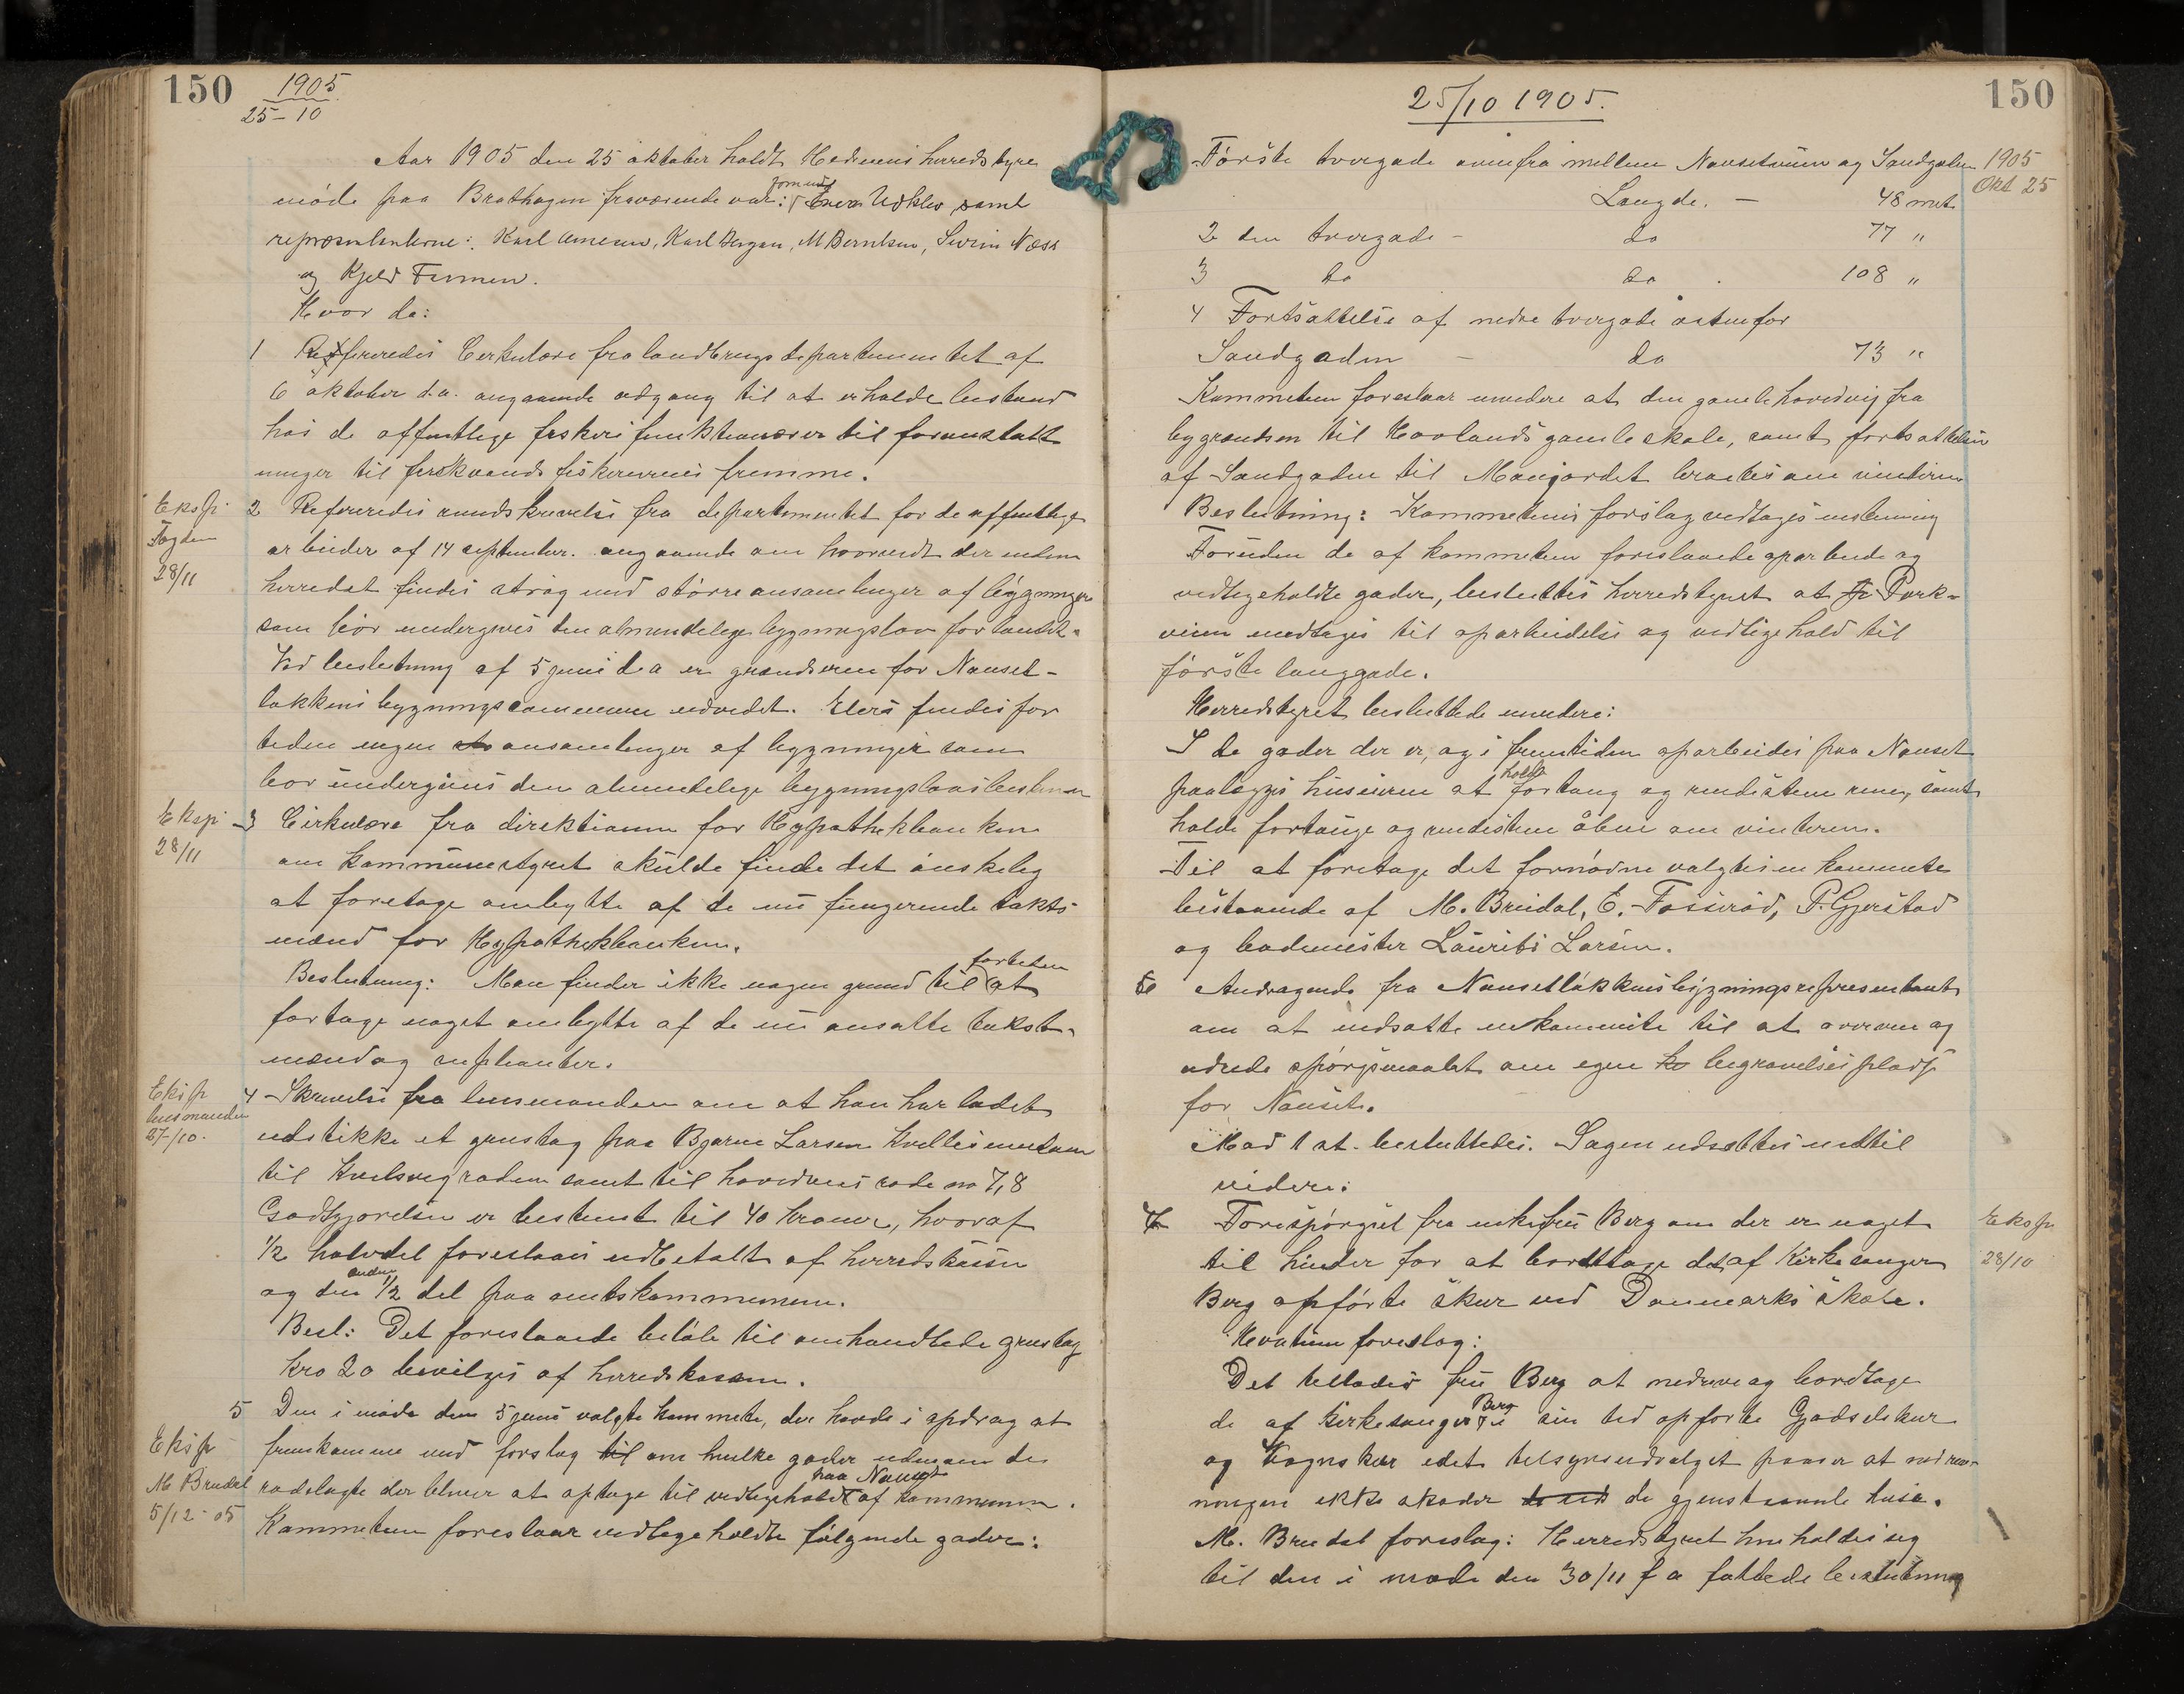 150 1905
25-10
Aar 1905 den 25 oktober holdt Hedrums herredstyre
møde paa Brathagen fraværende var: formand Enevald samt
repræsentanterne: Karl Amesen, Karl Bergan, M Berntsen, Severin Næss
og Kjeld Furmen.
Hvor da:
1 Refereredes Cerkulære fra landbrugsdepartementet af
6 oktober d.a. angaaende adgang til at erholde bestand
hos de offentlige fiskerifunktionærer til foranstalt
ninger til ferskvandsfiskeriernes fremme.
Eksp.
Fogden
28/11
2 Refereredes rundskrivelse fra departementet for de offentlige
arbeider af 14 september. angaaende om hvorvidt der inden
herredet findes strøg med større ansamlinger af bygninger
som bør undergives den almindelige bygningslov for landet.
Ved beslutning af 5 juni d a er grændserne for Nanset-
løkkens bygningscommune udvidet. Ellers findes for
tiden ingen ansamlinger af bygninger som
bør undergives den almindelige bygningslovs bestemm
Eksp
28/11
3 Cirkulære fra direktionen for Hypothekbanken
om kommunestyret skulde finde det ønskelig
at foretage ombytte af de nu fungerende takst
mænd for Hypothekbanken.
Beslutning: Man finder ikke nogen grund til fortiden at
fortage noget ombytte af de nu ansatte takst-
mænd og suplianter.
Eksp
lensmanden
27/10.
4 Skrivelse fra lensmanden om at han har ladet
udstikke et grustag paa Bjarne Larsen
til samt til hovedveis rode no 7,8
Godtgjørelsen er bestemt til 40 kroner, hvoraf
1/2 halvdel foreslaaes udbetalt af herredskassen
og den anden 1/2 del paa amtskommunen.
Besl: Det foreslaaede beløb til omhandlede grustag
kro 20 bevilges af herredskassen.
5 Den i møde den 5 juni valgte kommete, der havde i opdrag at
Eksp
M Bredal
5/12-05
fremkomme med forslag til om hvilke gader udenom de
radslagte der bliver at optage til vedligeholdt paa Nanset af kommunen.
Kommeteen foreslaar vedligeholdte følgende gader:
25/10 1905. 150
1905
Okt 25
Første tvergade ovenfra mellem Nansetveien og Sandgaden
Længde. - 48 met.
2 den tvergade - do 77 "
3 do do 108 "
4 Fortsættelse af nedre tvergade østenfor
Sandgaden - do 73 "
Kommeteen foreslaar videre at den gamle hovedvei fra
bygrændsen til Hovlands gamle skole, samt fortsættelsen
af Sandgaden til Mangjordet brøites om vinteren
Beslutning: Kommeteens forslag vedtages enstemmig
Foruden de af kommeteen foreslaaede oparbeide og
vedligeholdte gader, besluttes herredstyret at Park-
veien medtages til oparbeidelse og vedligehold til
første langgade.
Herredstyret besluttede videre:
I de gader der er, og i fremtiden oparbeides paa Nanset
paalægges huseierne at holde fortaug og rendesten rene, samt
holde fortauge og rendesten åben om vinteren.
Til at foretage det fornødne valgtes en kommete
bestaaende af M. Bredal, E. Fosserød, P. Gjerstad
og bademester Laurits Larsen.
6 Andragende fra Nansetløkkens bygningsrepresentant
om at nedsætte en kommite til at overveie og
udrede spørgsmaalet om egen ko begravelsesplads
for Nanset.
Mod 1 st. besluttedes. Sagen udsættes indtil
videre.
7 Forespørgsel fra enkefru Berg om der er noget
til hinder for at borttage det af Kirkesanger
Berg opførte skur ved Danmarks skole.
Eksp
28/10
Hvatum foreslog:
Det tillades fru Berg at nedrive og bordtage
de af Kirkesanger Berg i sin tid opførte Gjødselskur
og Vognskur idet tilsynsudvalget paaser at nedriv-
ningen ikke skader de gjenstaaende huse.
M. Bredal foreslog: Herredstyret henholder sig
til den i møde den 30/11 f a fattede beslutning